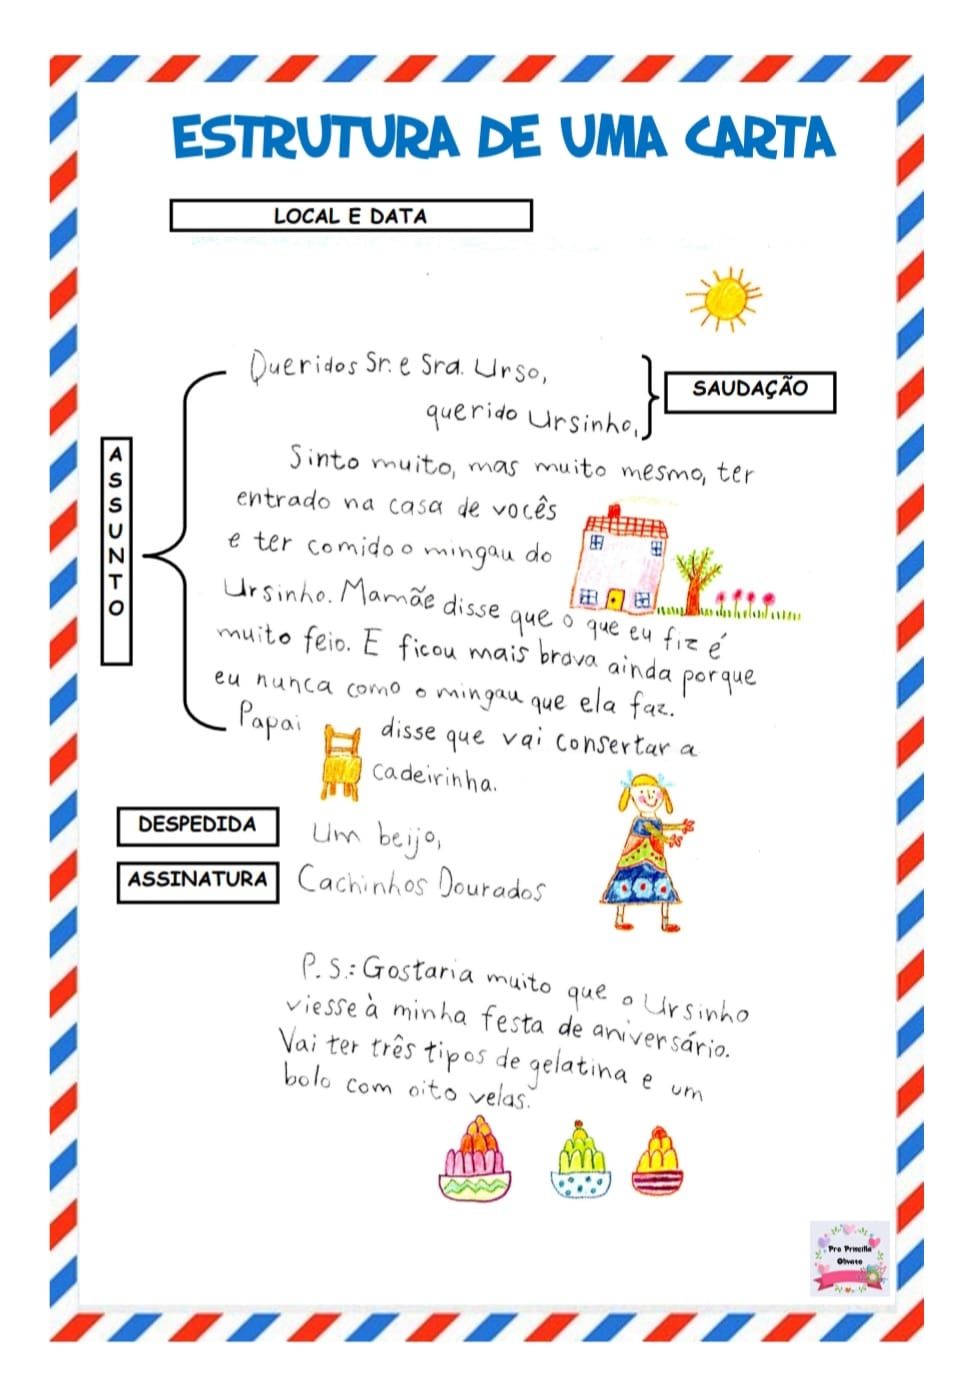 ESTRUTURA DE UMA CARTA
LOCAL E DATA
Queridos Sr. e Sra. Urso,
querido Ursinho,
SAUDAÇÃO
ASSUNTO
Sinto muito, mas muito mesmo, ter
entrado na casa de vocês
e ter comido o mingau do
Ursinho. Mamãe disse que o que eu fiz é
muito feio. E ficou mais brava ainda porque
eu nunca como o mingau que ela faz.
Papai disse que vai consertar a
cadeirinha.
DESPEDIDA
Um beijo,
ASSINATURA
Cachinhos Dourados
P.S.: Gostaria muito que o Ursinho
viesse à minha festa de aniversário.
Vai ter três tipos de gelatina e um
bolo com oito velas.
Pro Priscilla